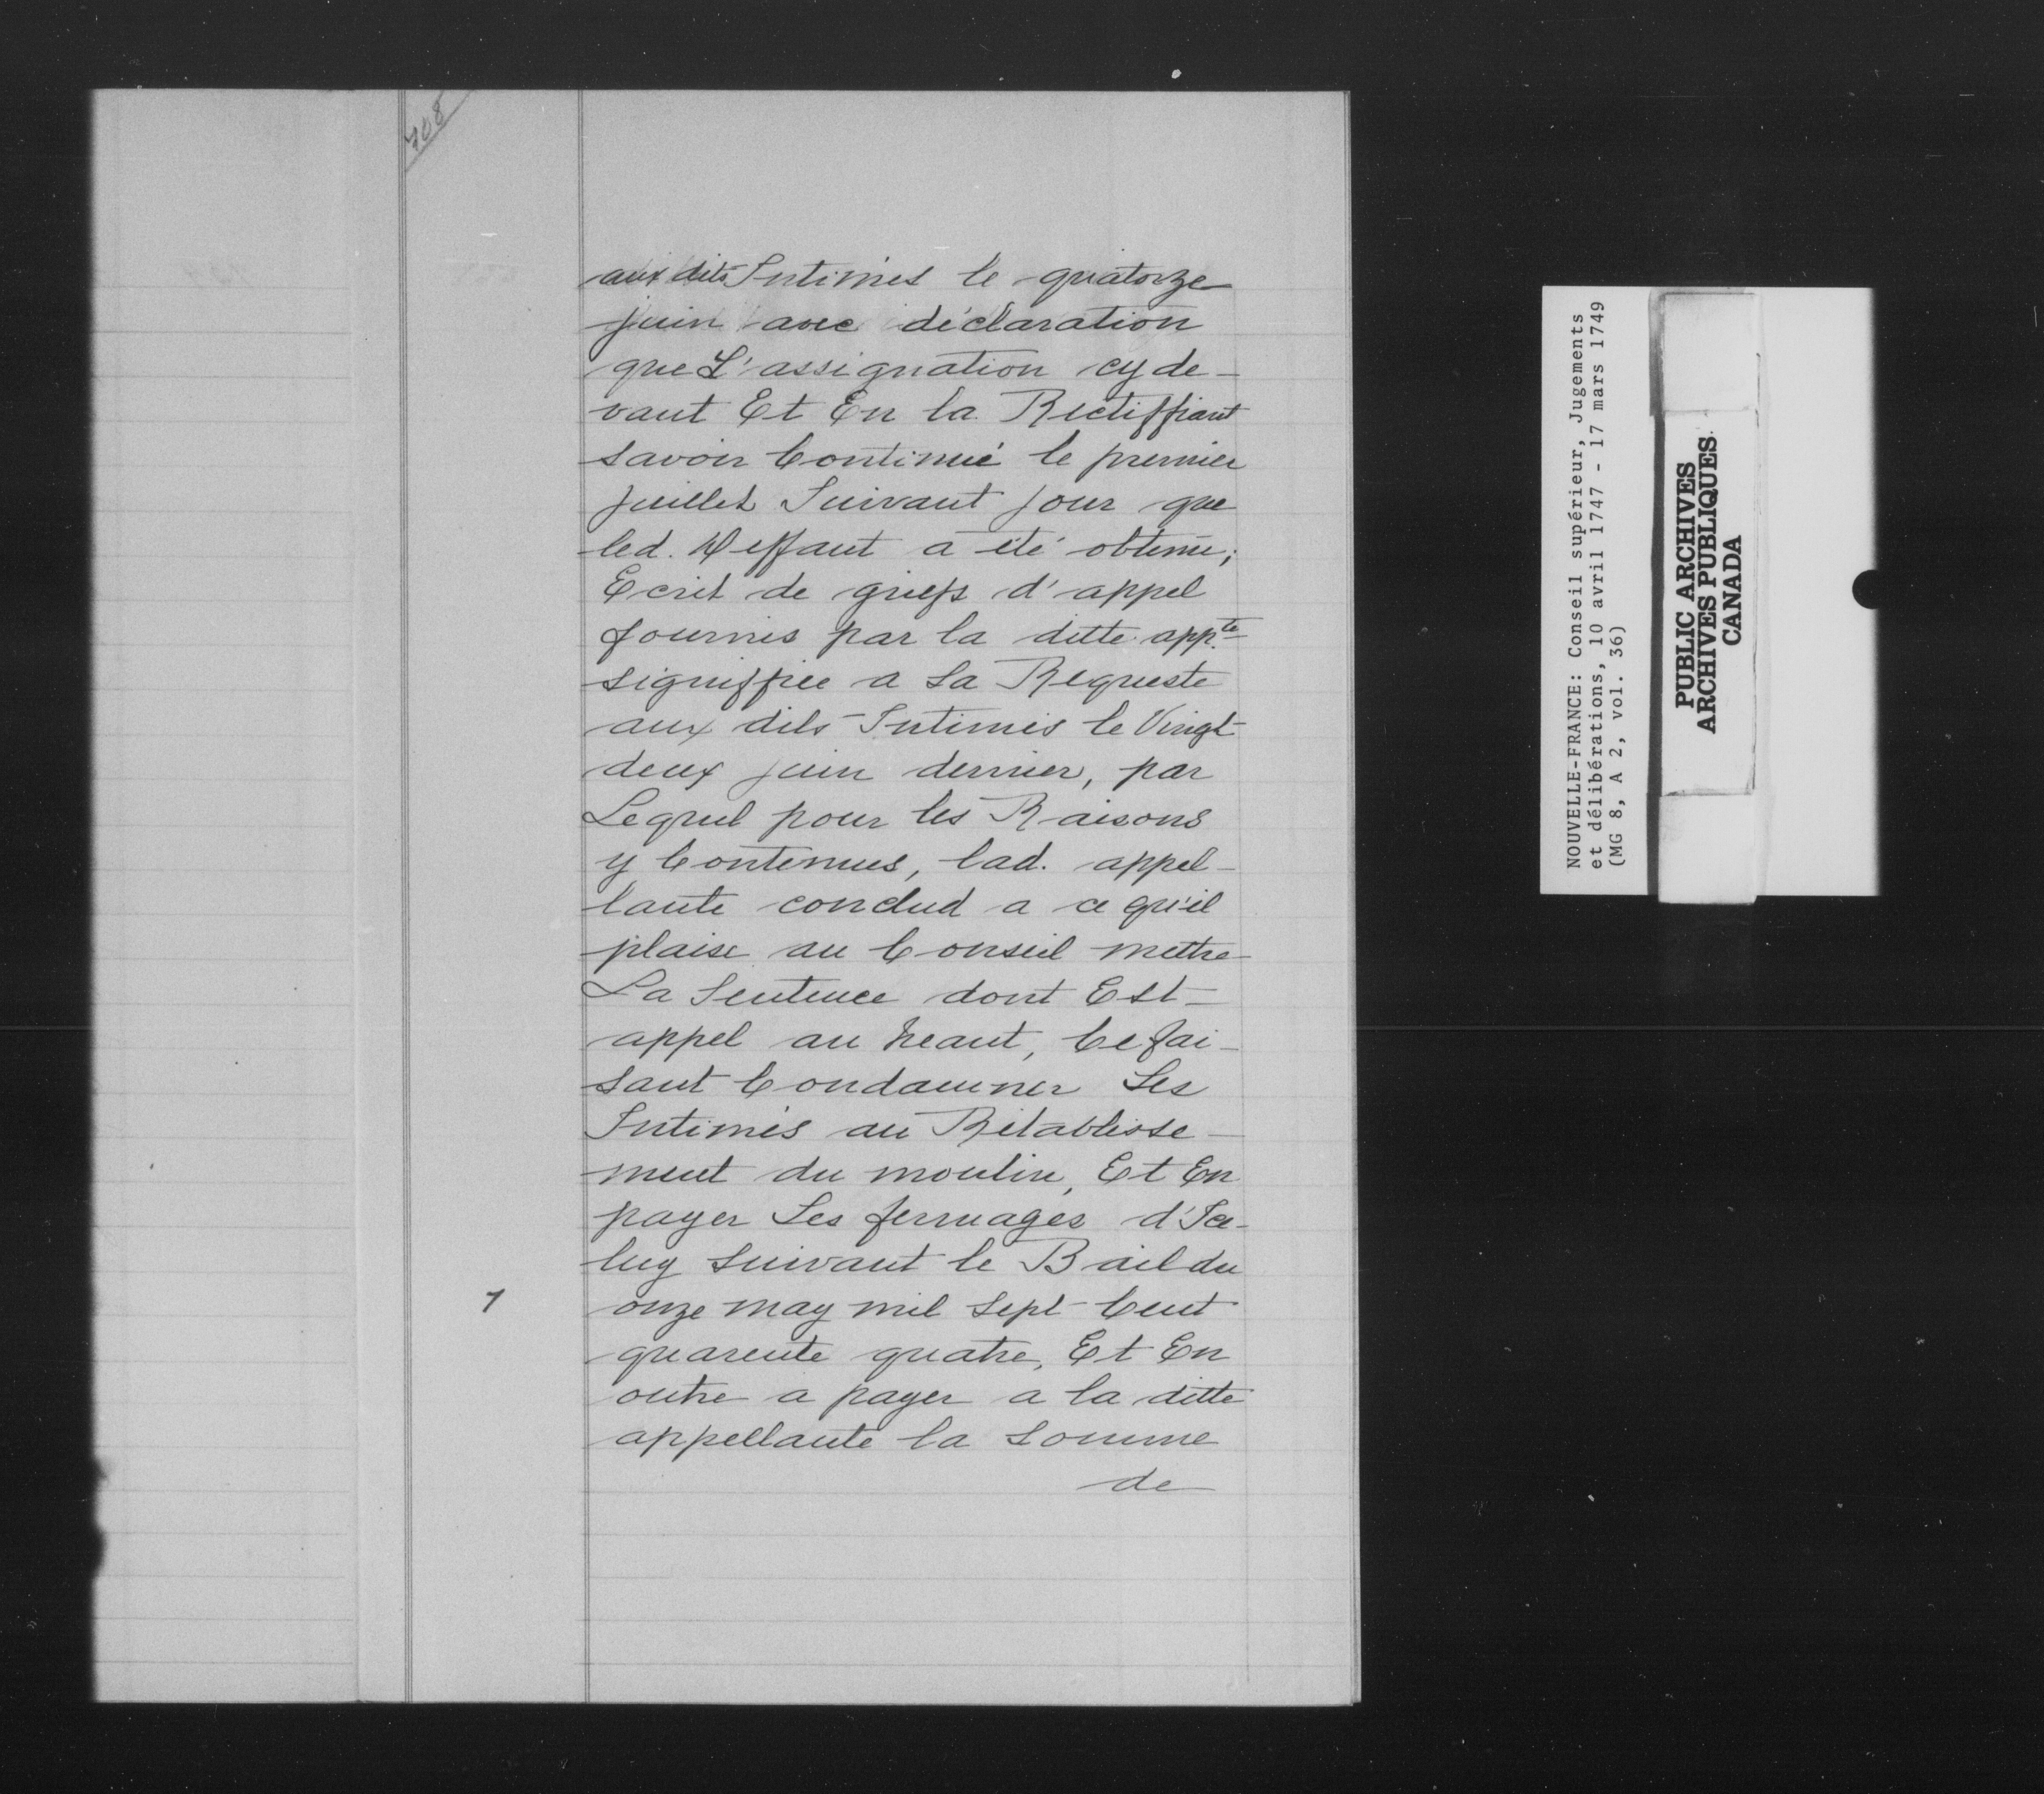 708
aux dits Intimés le quatorze
juin avec déclaration
que L'assignation cy de-
vant Et En la Rectiffiant
savoir Continué le premier
juillet Suivant jour que
led. Deffaut a été obtenu;
Ecrit de griefs d'appel
fournis par la ditte app.te
signiffiée a Sa Requeste
aux dits Intimés le Vingt
deux juin dernier, par
Lequel pour les Raisons
y Contenues, lad. appel-
lante conclud a ce qu'il
plaise au Conseil mettre
La Sentence dont Est
appel au neant, Ce fai-
sant Condamner Les
Intimés au Rétablisse-
ment du moulin, Et En
payer Les fermages d'Ice-
luy suivant le Bail du
1
onze may mil sept Cent
quarente quatre, Et En
outre a payer a la ditte
appellante la somme
de
NOUVELLE-FRANCE: Conseil supérieur, Jugements
et délibérations, 10 avril 1747 - 17 mars 1749
(MG 8, A 2, vol. 36)
PUBLIC ARCHIVES
ARCHIVES PUBLIQUES
CANADA